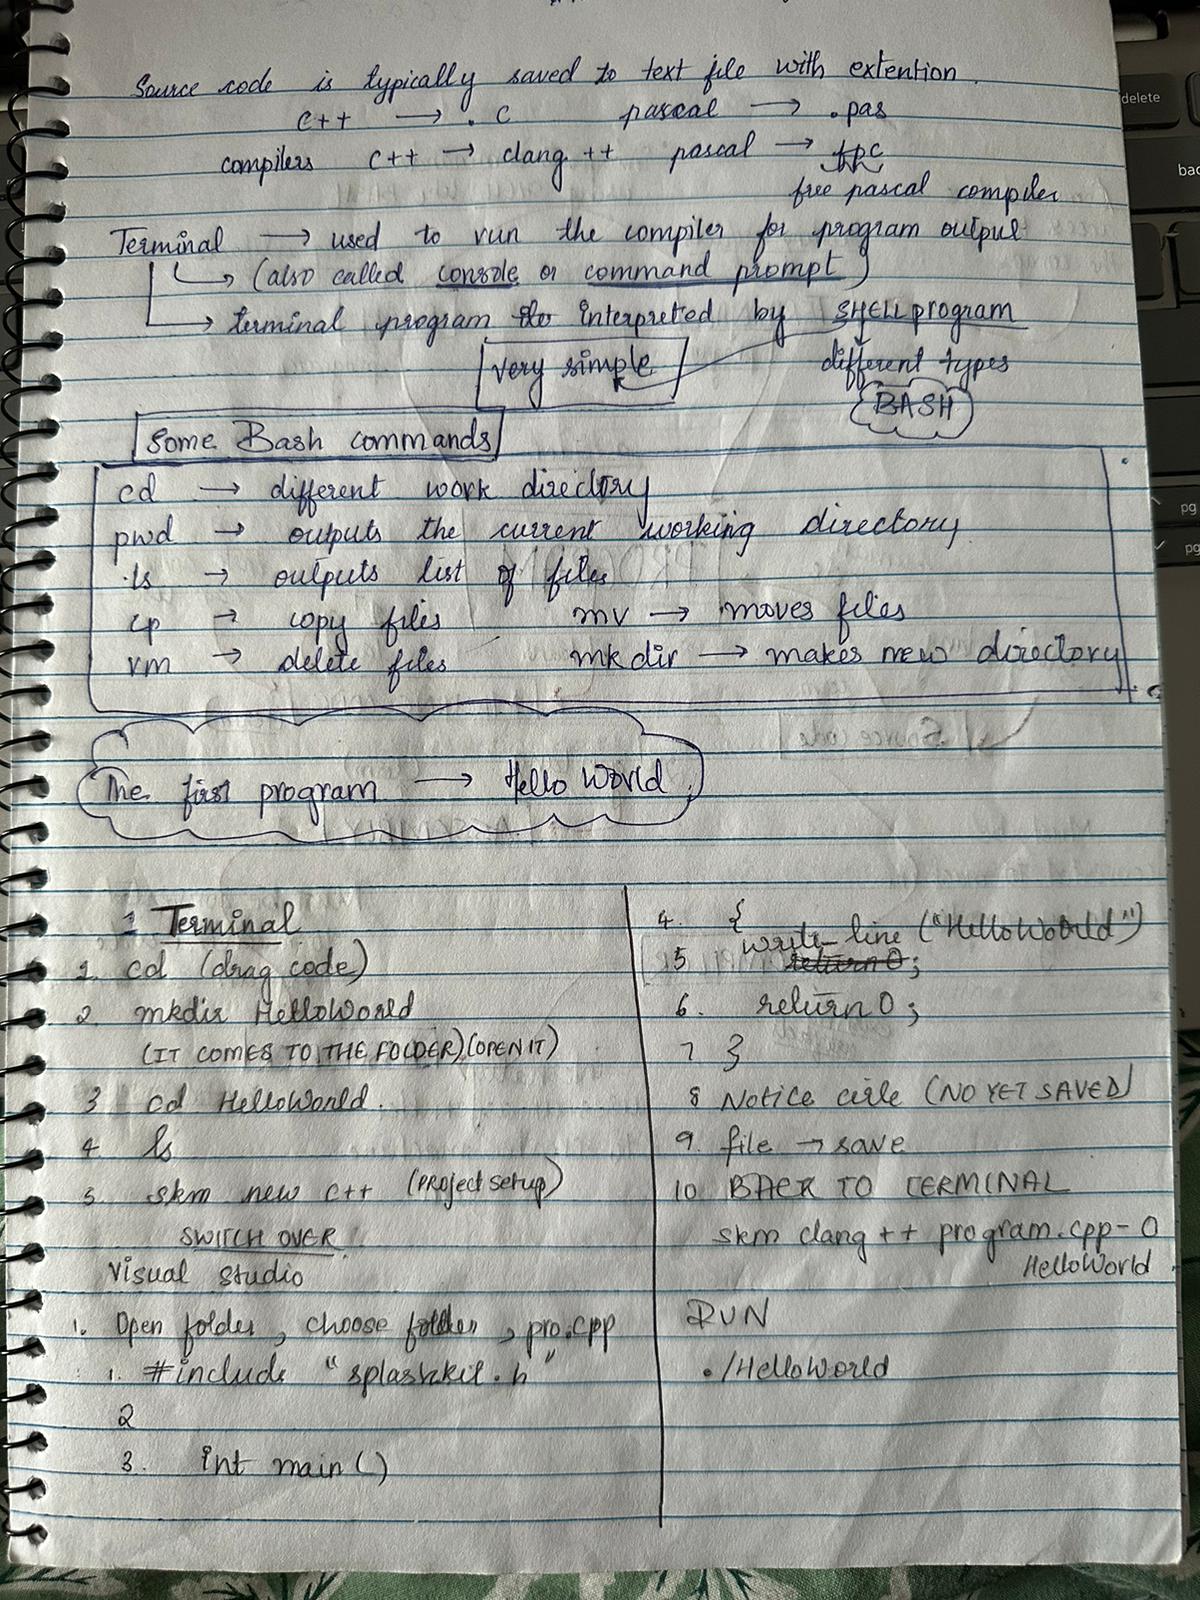 Source code is typically saved to text file with extention.
C++ → .C pascal → .pas
compilers C++ → clang ++ pascal → fpc
free pascal compiler
Terminal → used to run the compiler for program output
(also called console or command prompt)
terminal program interpreted by SHELL program
very simple different types
BASH
Some Bash commands
cd → different work directory
pwd → outputs the current working directory
ls → outputs list of files
cp → copy files mv → moves files
rm → delete files mkdir → makes new directory
The first program → Hello World
1 Terminal
1. cd (drag code)
2. mkdir HelloWorld
(IT COMES TO THE FOLDER) (OPEN IT)
3 cd HelloWorld.
4. ls
5. skm new c++ (project setup)
SWITCH OVER
Visual Studio
1. Open folder, choose folder, pro.cpp
1. #include "splashkit.h"
2
3. int main()
4. {
write_line ("HelloWorld")
5 return 0;
6. return 0;
7 }
8 Notice cirle (NO YET SAVED)
9. file → save
10 BACK TO TERMINAL
skm clang ++ program.cpp -O
HelloWorld
RUN
./HelloWorld